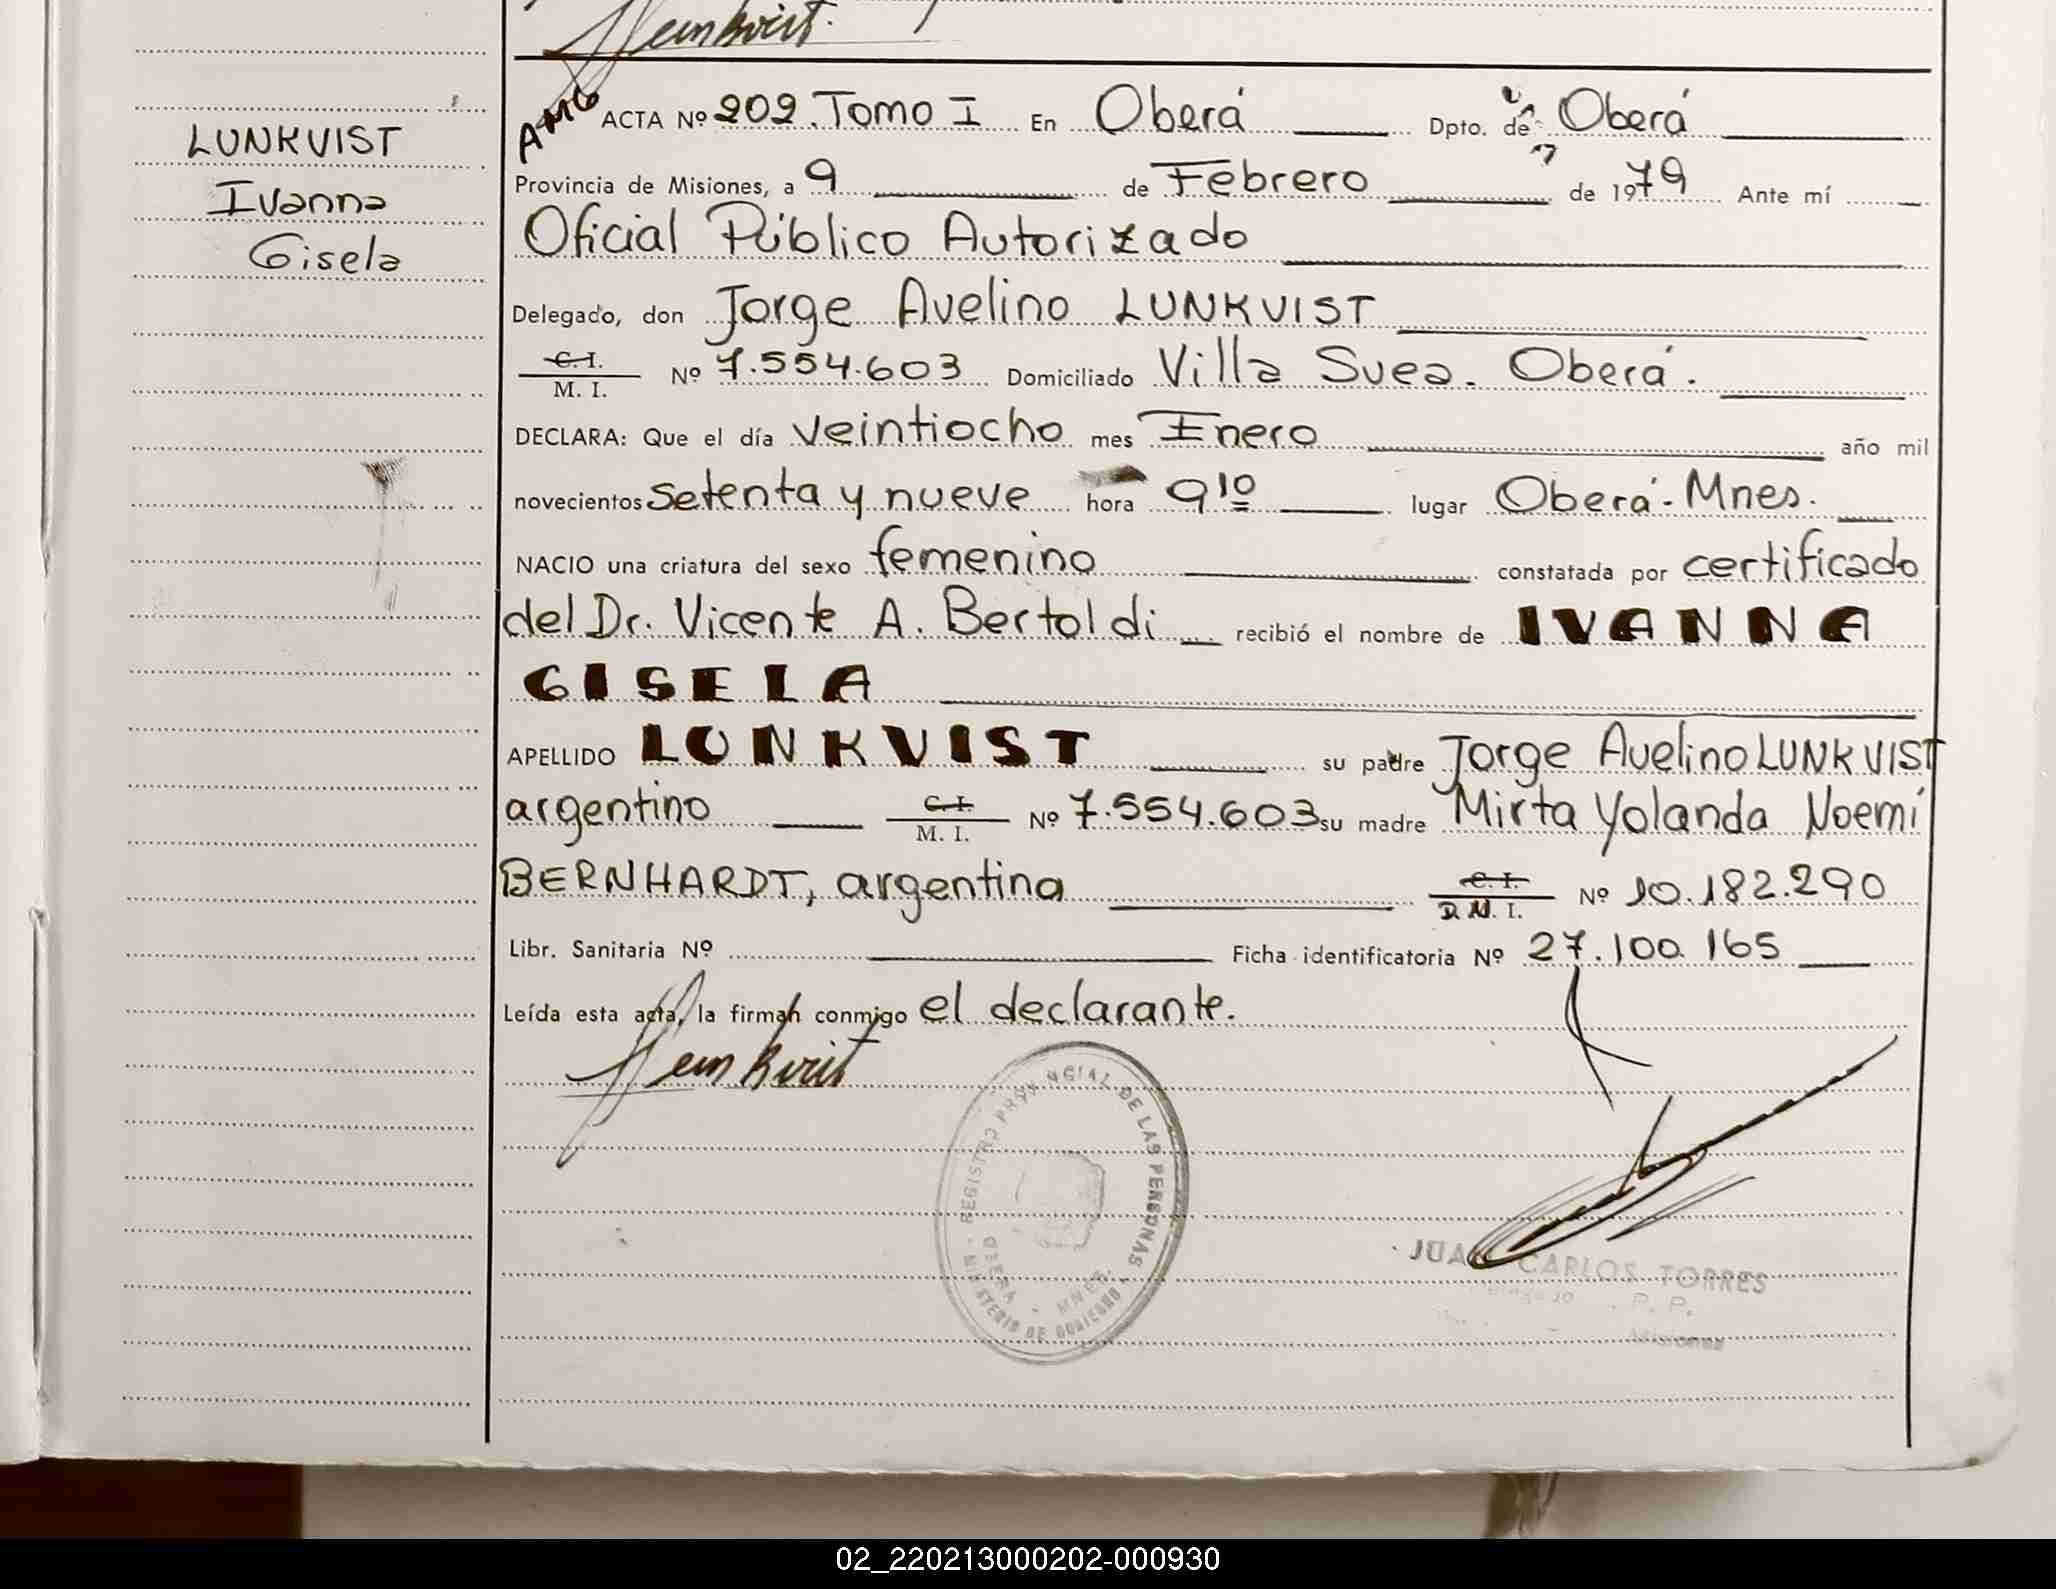 LUNKVIST
Ivanna
Gisela
AMG
ACTA Nº 202. Tomo I En Oberá Dpto. de Oberá
Provincia de Misiones, a 9 de Febrero de 1979 Ante mí
Oficial Público Autorizado
Delegado, don Jorge Avelino LUNKVIST
C.I.
M. I. Nº 7.554.603 Domiciliado Villa Suea. Oberá.
DECLARA: Que el día veintiocho mes Enero año mil
novecientos setenta y nueve hora 9 10 lugar Oberá - Mnes.
NACIO una criatura del sexo femenino constatada por certificado
del Dr. Vicente A. Bertoldi recibió el nombre de IVANNA
GISELA
APELLIDO LUNKVIST su padre Jorge Avelino LUNKVIST
argentino C.I. M. I. Nº 7.554.603 su madre Mirta Yolanda Noemí
BERNHARDT, argentina C.I. D.N. I. Nº 10.182.290
Libr. Sanitaria Nº Ficha identificatoria Nº 27.100.165
Leída esta acta, la firman conmigo el declarante.
REGISTRO PROVINCIAL DE LAS PERSONAS
MINISTERIO DE GOBIERNO
OBERA - MNES.
JUAN CARLOS TORRES
Misiones
02_220213000202-000930